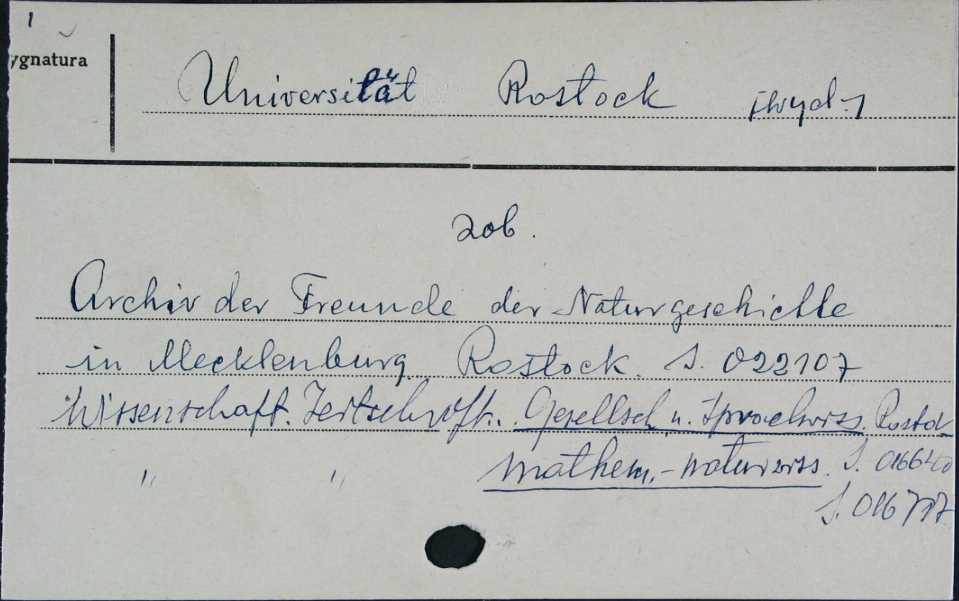 1
ygnatura
Universität Rostock [wyd.]
zob.
Archiv der Freunde der Naturgeschichte
in Mecklenburg. Rostock. S. 022107
Wissenschaft. Zeitschrift. Gesellsch. u. Sprachwiss. Rostock
" " Mathem.-naturwiss. S. 016640
S. 016717